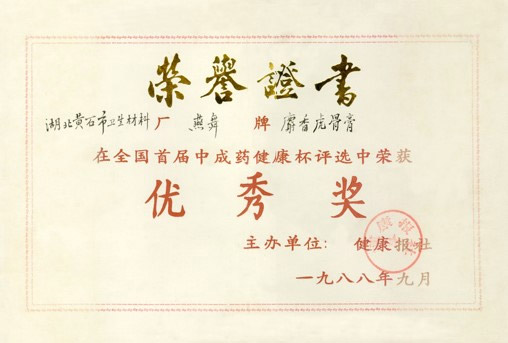 榮譽證書
湖北黄石市卫生材料厂 燕舞 牌 麝香虎骨膏
在全国首届中成药健康杯评选中荣获
优秀奖
主办单位: 健康报社
一九八八年九月